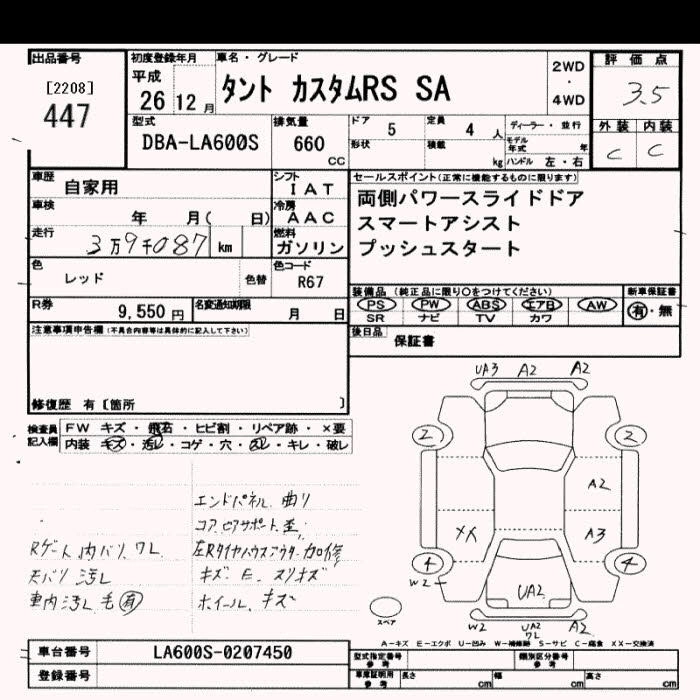 出品番号
[2208]
447
初度登録年月
平成
26 12月
車名・グレード
タント カスタムRS SA
2WD
・
4WD
評価点
3.5
外装 内装
C C
型式
DBA-LA600S
排気量
660
CC
ドア 5
形状
定員 4 人
積載 kg
ディーラー・並行
モデル年式 年
ハンドル 左・右
車歴 自家用
シフト
IAT
車検 年 月( 日)
冷房
AAC
走行 3万9千087 km
燃料
ガソリン
色 レッド
色替
色コード
R67
R券 9,550円
名変通知期限 月 日
セールスポイント(正常に機能するものに限ります)
両側パワースライドドア
スマートアシスト
プッシュスタート
装備品 (純正品に限り○をつけてください)
PS PW ABS エアB AW
SR ナビ TV カワ
新車保証書
有・無
後日品 保証書
注意事項申告欄(不具合内容等は具体的に記入して下さい)
修復歴 有[箇所 ]
検査員記入欄
FW キズ・飛石・ヒビ割・リペア跡・×要
内装 キズ・汚レ・コゲ・穴・スレ・キレ・破レ
エンドパネル 曲リ
コアロアサポート
Rゲート内バリ ワレ
左Rタイヤハウスアウター 加修
天バリ 汚レ
キズ E スリキズ
車内汚レ 毛 有
ホイール キズ
UA3 A2 A2
2 2
A2
XX A3
4 4
W2
UA2
W2 UA2 ワレ A2
スペア
A-キズ E-エクボ U-凹み W-補修跡 S-サビ C-腐食 XX-交換済
車台番号 LA600S-0207450
登録番号
型式指定番号 参考
類別区分番号 参考
車庫証明用 参考
長さ cm 幅 cm 高さ cm